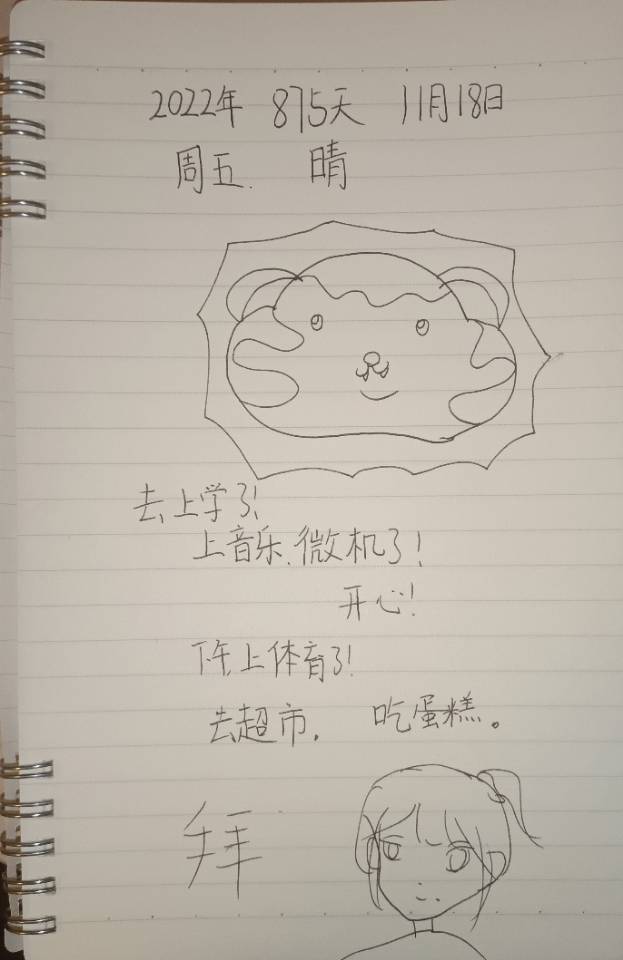 2022年 875天 11月18日
周五. 晴
去上学了!
上音乐.微机了!
开心!
下午上体育了!
去超市. 吃蛋糕。
拜